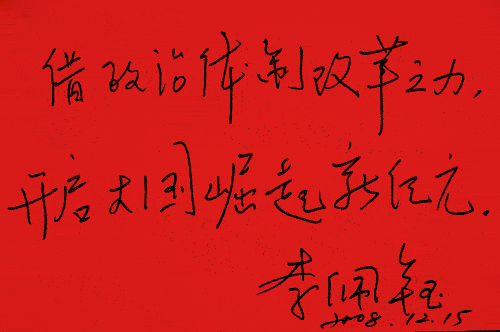 借政治体制改革之力,
开启大国崛起新纪元.
李佩钰
2008.12.15